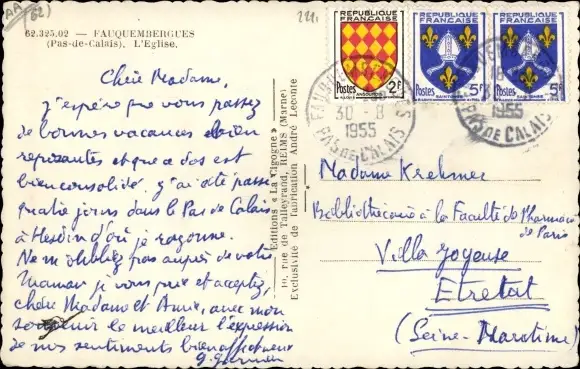 AA
62)
62.325.02 — FAUQUEMBERGUES
(Pas-de-Calais). L'Eglise.
Chère Madame,
j'espère que vous passez
de bonnes vacances bien
reposantes et que a dos est
bien consolidé. J'ai été passer
quatre jours dans le Pas de Calais
à Hesdin d'où je rayonne.
Ne m'oubliez pas auprès de votre
Maman je vous prie et acceptez,
chère Madame et Amie, avec mon
souvenir le meilleur l'expression
de mes sentiments bien affectueux
Editions « La Cigogne »
10, rue de Talleyrand, REIMS (Marne)
Exclusivité de fabrication André Leconte
REPUBLIQUE
FRANÇAISE
Postes 2F
ANGOUMOIS
REPUBLIQUE
FRANÇAISE
Postes 5F
SAINTONGE
REPUBLIQUE
FRANÇAISE
Postes 5F
SAINTONGE
30 - 8
1955
PAS DE CALAIS
1955
PAS DE CALAIS
Madame Krehmer
Bibliothécaire à la Faculté de Pharmacie
de Paris
Villa Joyeuse
Etretat
(Seine-Maritime)